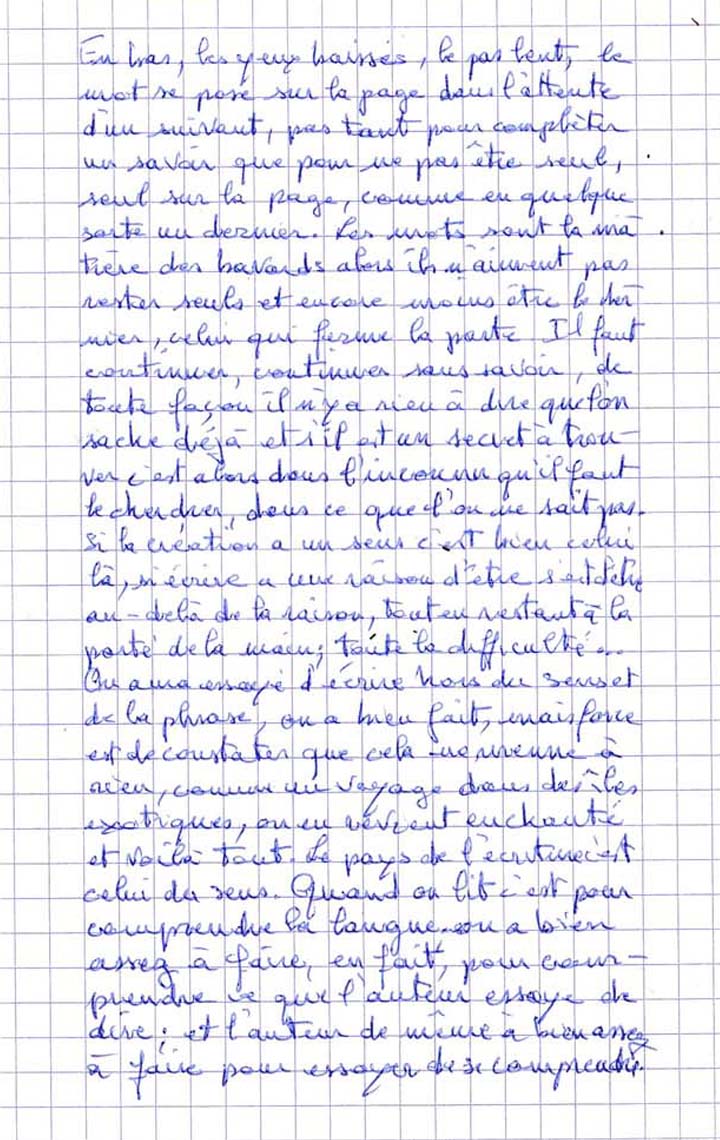 En bas, les yeux baissés, le pas lent, le
mot se pose sur la page dans l'attente
d'un suivant, pas tant pour complèter
un savoir que pour ne pas être seul,
seul sur la page, comme en quelque
sorte un dernier. Les mots sont la ma
tière des bavards alors ils n'aiment pas
rester seuls et encore moins être le der
nier, celui qui ferme la porte Il faut
continuer, continuer sans savoir, de
toute façon il n'y a rien à dire que l'on
sache déjà et s'il est un secret à trou-
ver c'est alors dans l'inconnu qu'il faut
le chercher, dans ce que l'on ne sait pas.
Si la création a un sens c'est bien celui
là, si écrire a une raison d'être s'est d'être
au-delà de la raison, tout en restant à la
porté de la main; toute la difficulté...
On aura essayé d'écrire hors du sens et
de la phrase, on a bien fait, mais force
est de constater que cela ne mène à
rien, comme un voyage dans des îles
exotiques, on en revient enchanté
et voilà tout. Le pays de l'écriture c'est
celui du sens. Quand on lit c'est pour
comprendre la langue. on a bien
assez à faire, en fait, pour com-
prendre ce que l'auteur essaye de
dire; et l'auteur de même à bien assez
à faire pour essayer de se comprendre.